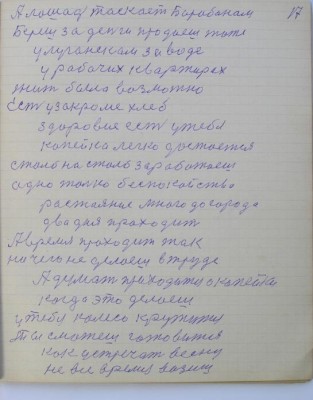 17
А лошад таскает Барабанам
Береш за денги продаеш тоже
у луганскам заводе
у рабочих квартирах
жит была возможно
Ест узакроме хлеб
здоровия ест у тебя
копейка легко достается
столь на столь заработаеш
одно только беспокойство
растаяние много до города
два дня проходит
А время проходит так
ничего не делаеш в труде
А думат приходится о копейки
когда это делаеш
у тебя колесо кружится
Ты сможеш готовится
как встречат весну
не все время возиш